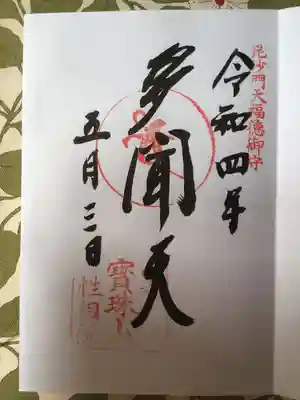 毘沙門天福徳御守
令和四年
多聞天
五月三日